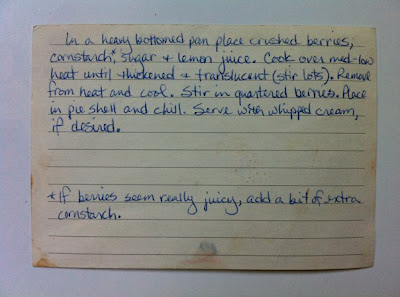 In a heavy bottomed pan place crushed berries,
cornstarch,* sugar + lemon juice. Cook over med-low
heat until thickened + translucent (stir lots). Remove
from heat and cool. Stir in quartered berries. Place
in pie shell and chill. Serve with whipped cream,
if desired.
*If berries seem really juicy, add a bit of extra
cornstarch.